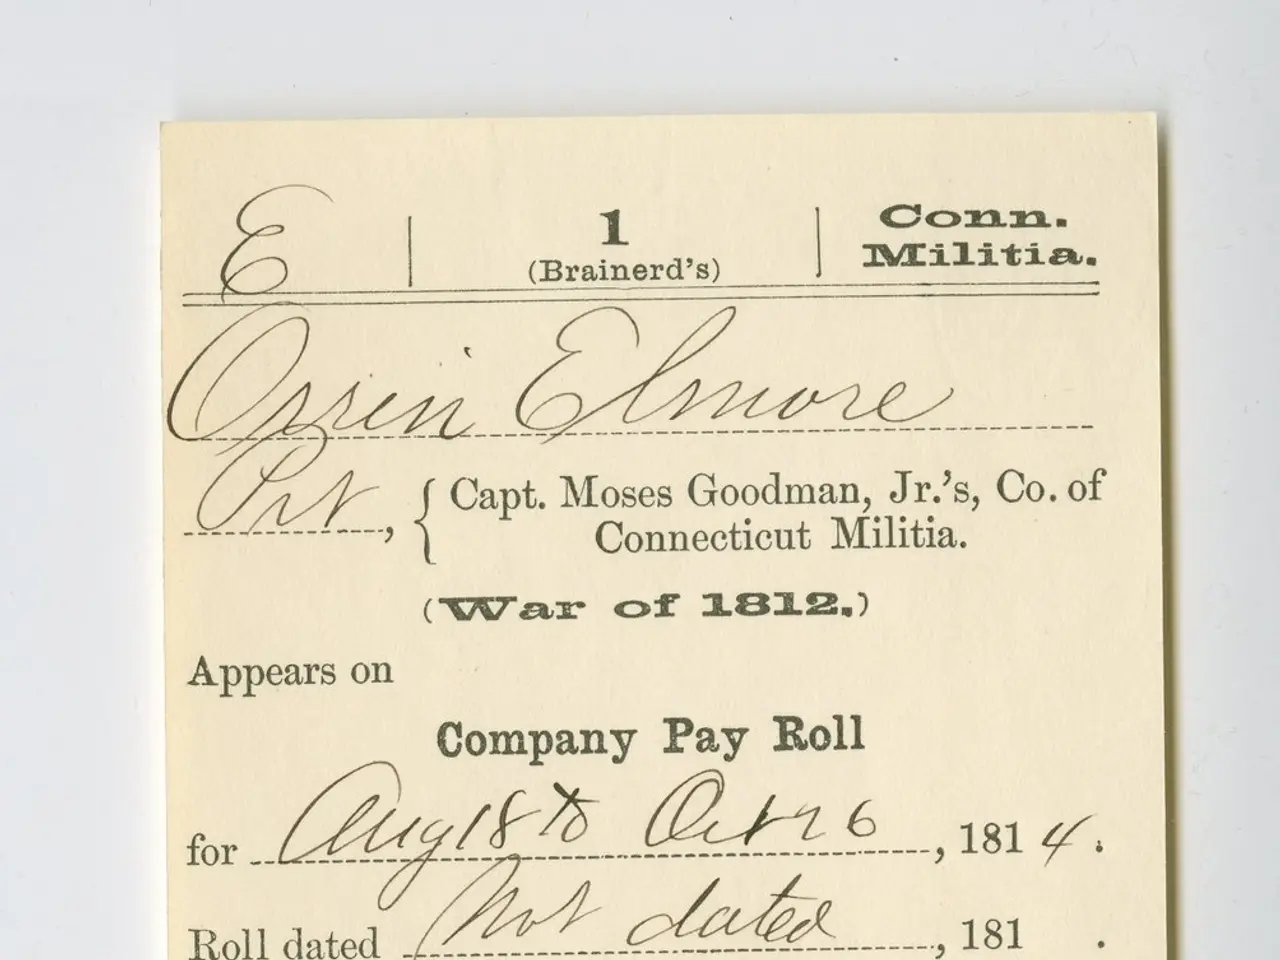 E | 1 | Conn.
(Brainerd's) Militia.
Orrin Elmore
Pvt, { Capt. Moses Goodman, Jr.'s, Co. of
Connecticut Militia.
(War of 1812.)
Appears on
Company Pay Roll
for Aug 18 to Oct 26, 1814.
Roll dated Not dated, 181 .